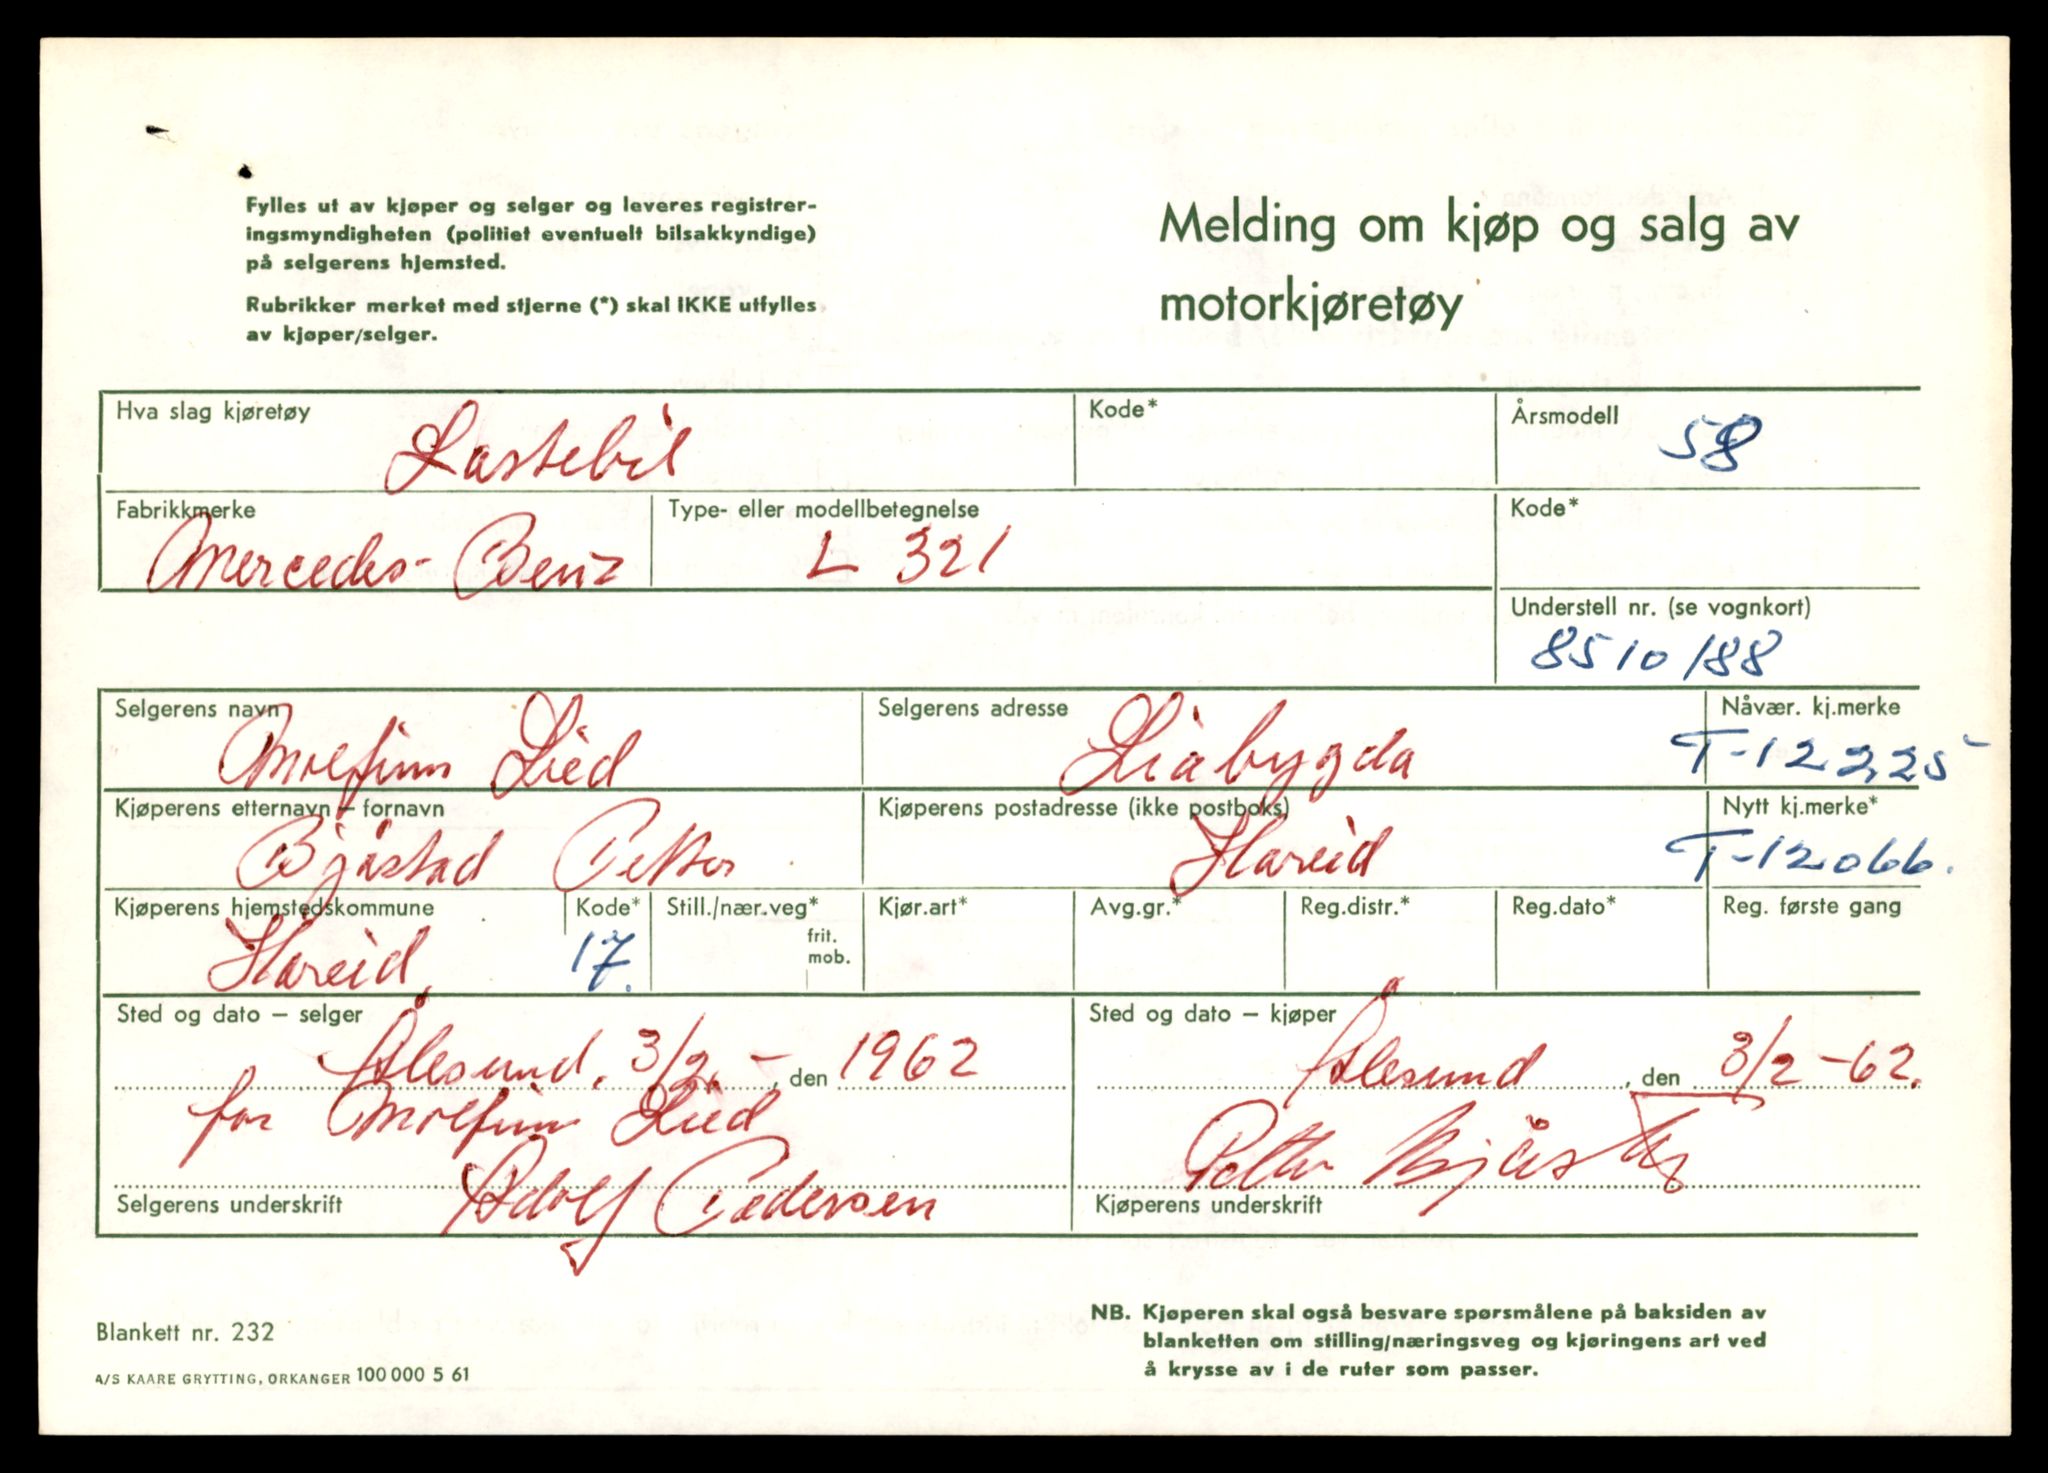 Fylles ut av kjøper og selger og leveres registrer-
ingsmyndigheten (politiet eventuelt bilsakkyndige)
på selgerens hjemsted.
Rubrikker merket med stjerne (*) skal IKKE utfylles
av kjøper/selger.
Melding om kjøp og salg av
motorkjøretøy
Hva slag kjøretøy
Lastebil
Kode*
Årsmodell
58
Fabrikkmerke
Mercedes-Benz
Type- eller modellbetegnelse
L 321
Kode*
Understell nr. (se vognkort)
8510188
Selgerens navn
Molfinn Lied
Selgerens adresse
Liabygda
Nåvær. kj.merke
T-12225
Kjøperens etternavn – fornavn
Bjåstad Petter
Kjøperens postadresse (ikke postboks)
Hareid
Nytt kj.merke*
T-12066.
Kjøperens hjemstedskommune
Hareid
Kode*
17.
Still./nær.veg*
frit.
mob.
Kjør.art*
Avg.gr.*
Reg.distr.*
Reg.dato*
Reg. første gang
Sted og dato – selger
Ålesund, 3/2 - , den 1962
for Molfinn Lied
Adolf Pedersen
Selgerens underskrift
Sted og dato – kjøper
Ålesund , den 3/2-62.
Petter Bjåstad
Kjøperens underskrift
Blankett nr. 232
A/S KAARE GRYTTING, ORKANGER 100 000 5 61
NB. Kjøperen skal også besvare spørsmålene på baksiden av
blanketten om stilling/næringsveg og kjøringens art ved
å krysse av i de ruter som passer.